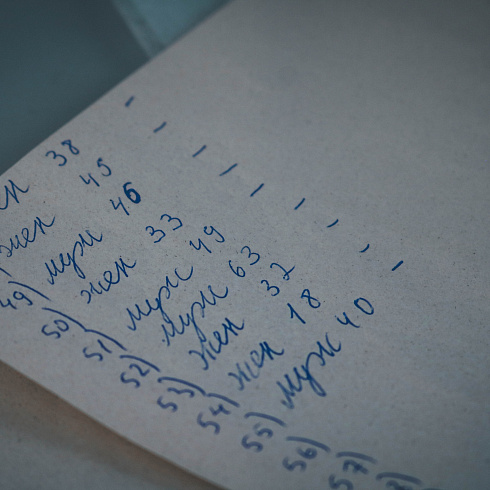 ен 38 -
) жен 45 -
49) муж 46 -
50) жен 33 -
51) муж 49 -
52) муж 63 -
53) жен 32 -
54) жен 18 -
55) муж 40 -
56)
57)